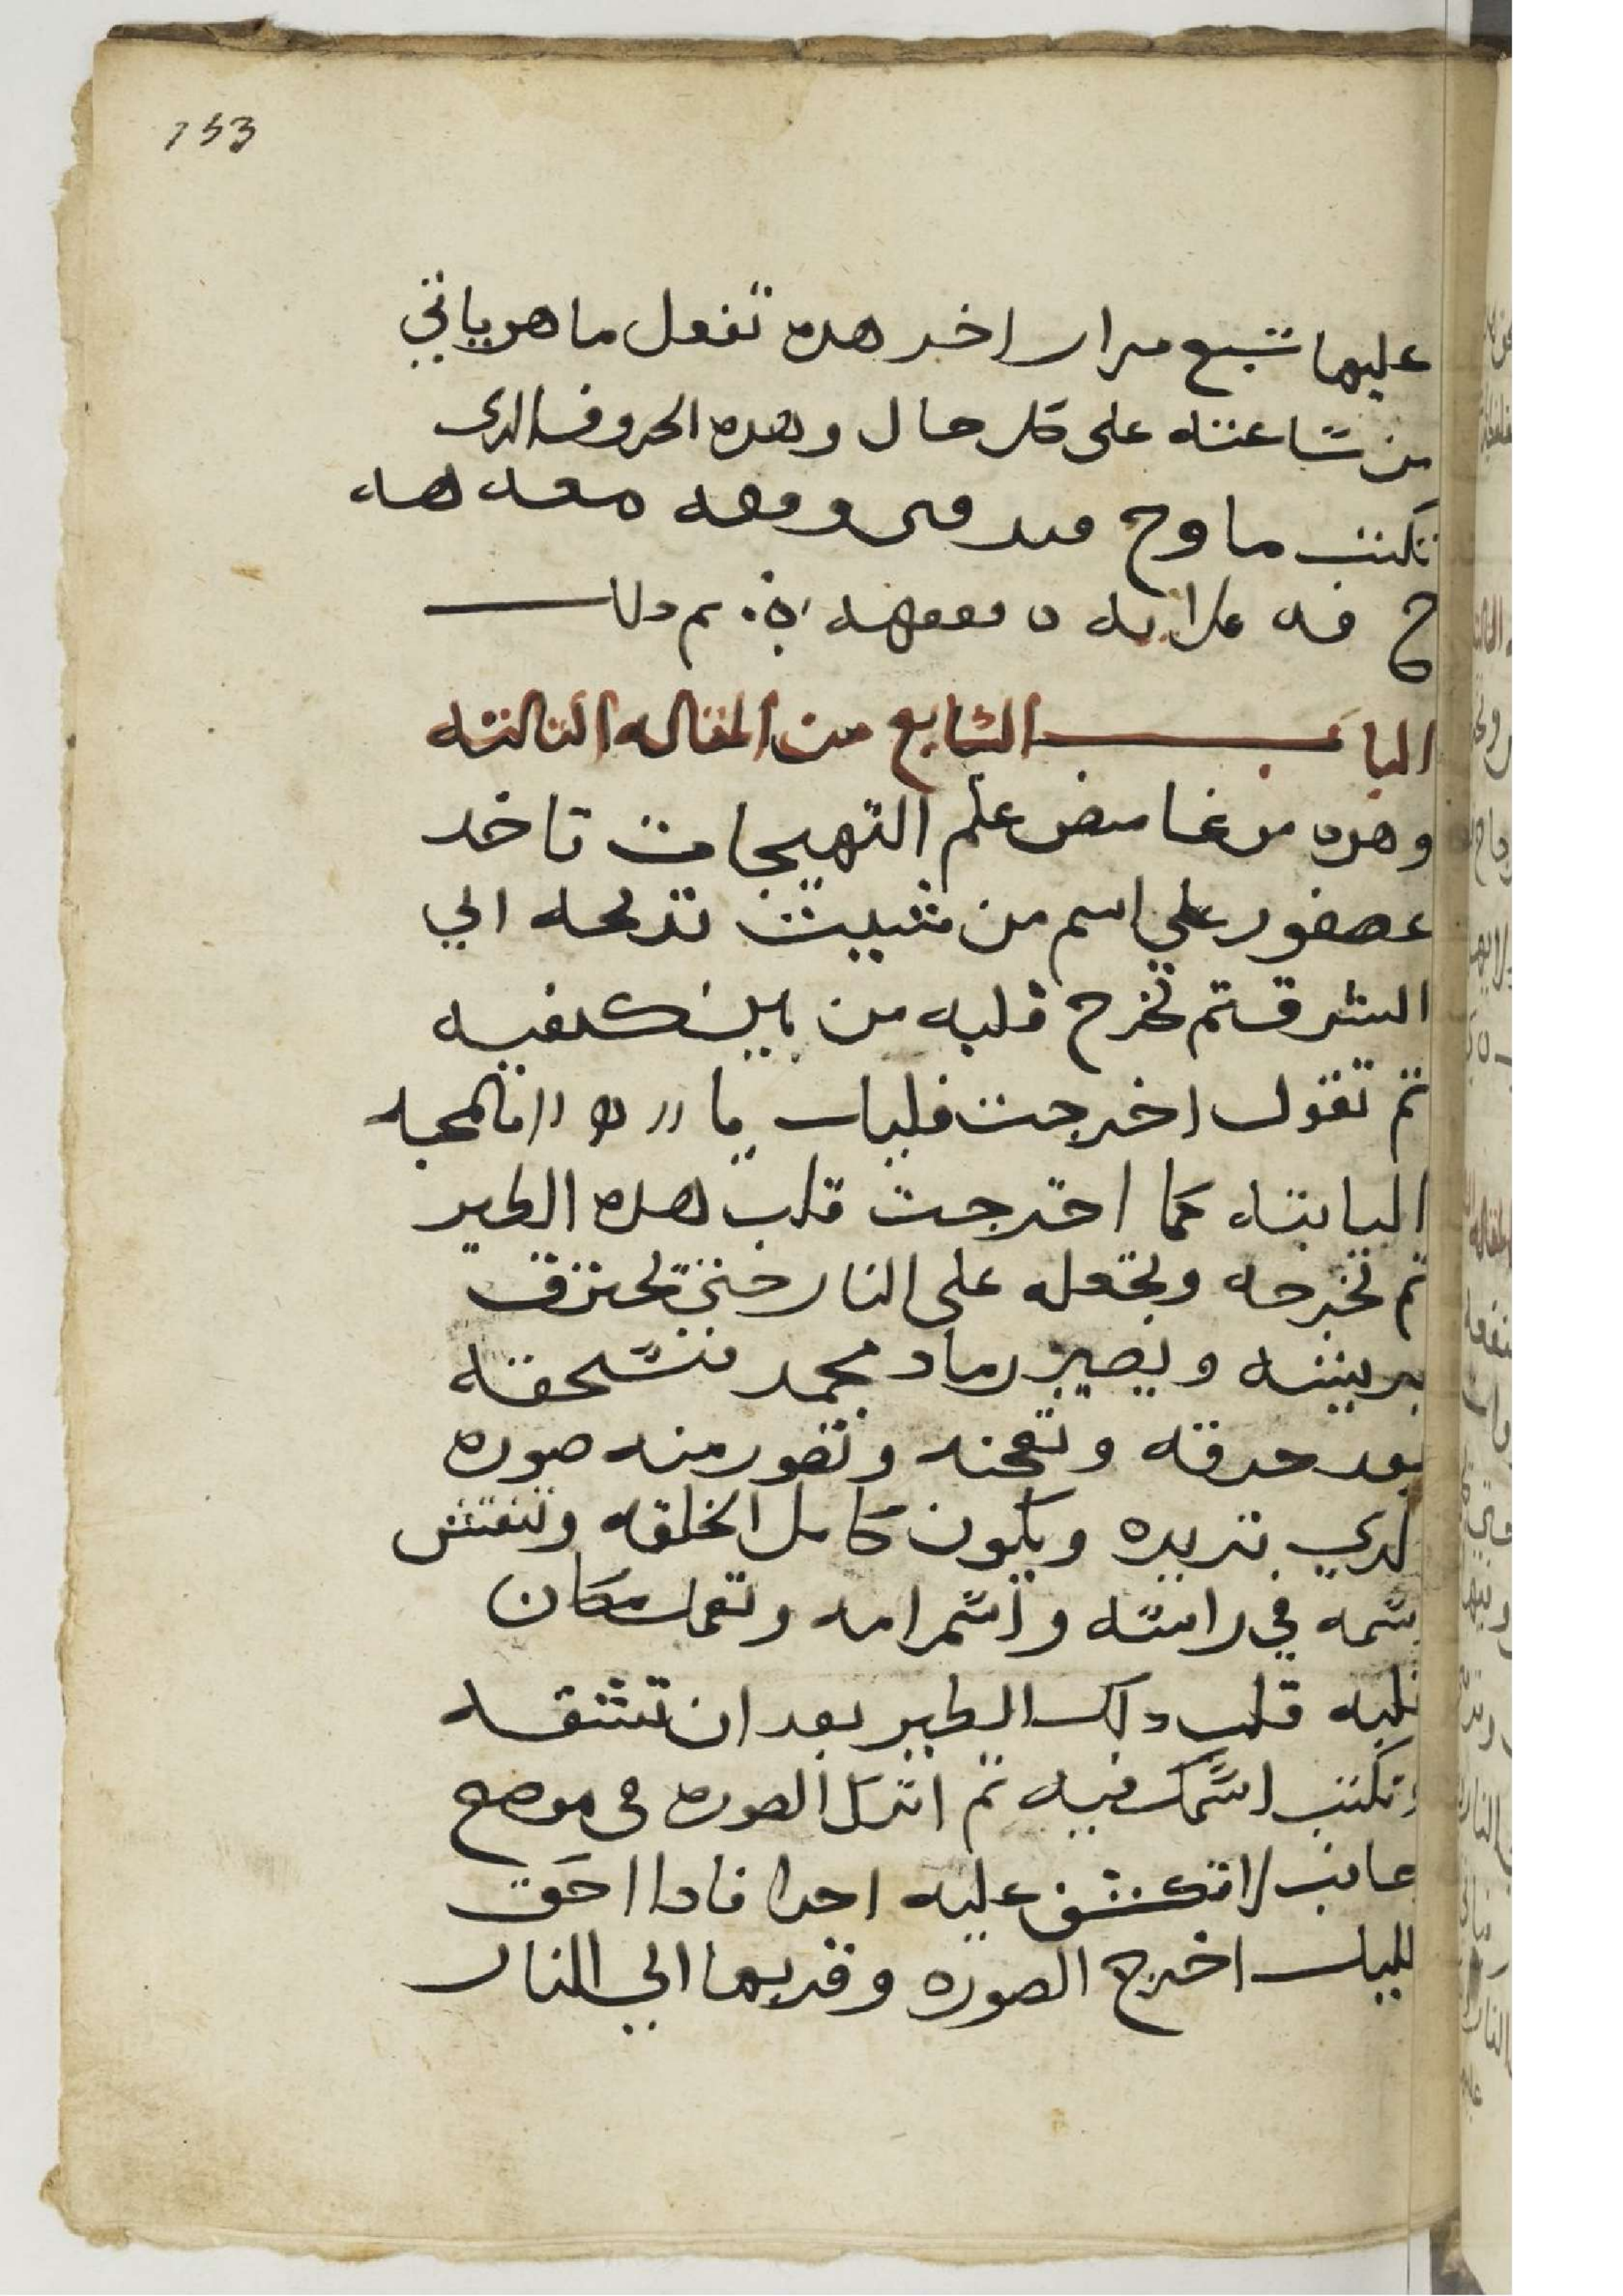 153
عليها سبع مرار اخر هده تفعل ما هو ياتي
من ساعته على كل حال وهده الحروف الدى
تكتب ما وح ومعه معه هه
ح فه تم دلك
الباب السابع من المقاله التالته
وهده من غامض علم التهيجات تاخد
عصفور علي اسم من شيت تدبحه الي
الشرق تم تخرج قلبه من بين كتفيه
تم تقول اخرجت قلبك يا بالمحبه
التابته كما اخرجت قلب هده الطير
تم تخرجه وتجعله على النار حتى تحترق
بريشه ويصير رماد تسحقه
بعد حرقه وتعجنه وتصور منه صوره
لدي تريده ويكون كامل الخلقه وتنقش
اسمه في راسه واسم امه وتعمل مكان
قلبه قلب دلك الطير بعد ان تشقه
وتكتب اسمك فيه تم اترك الصوره فى موضع
لا تكشف عليه احدا فادا
لليل اخرج الصوره وقربها الي النار